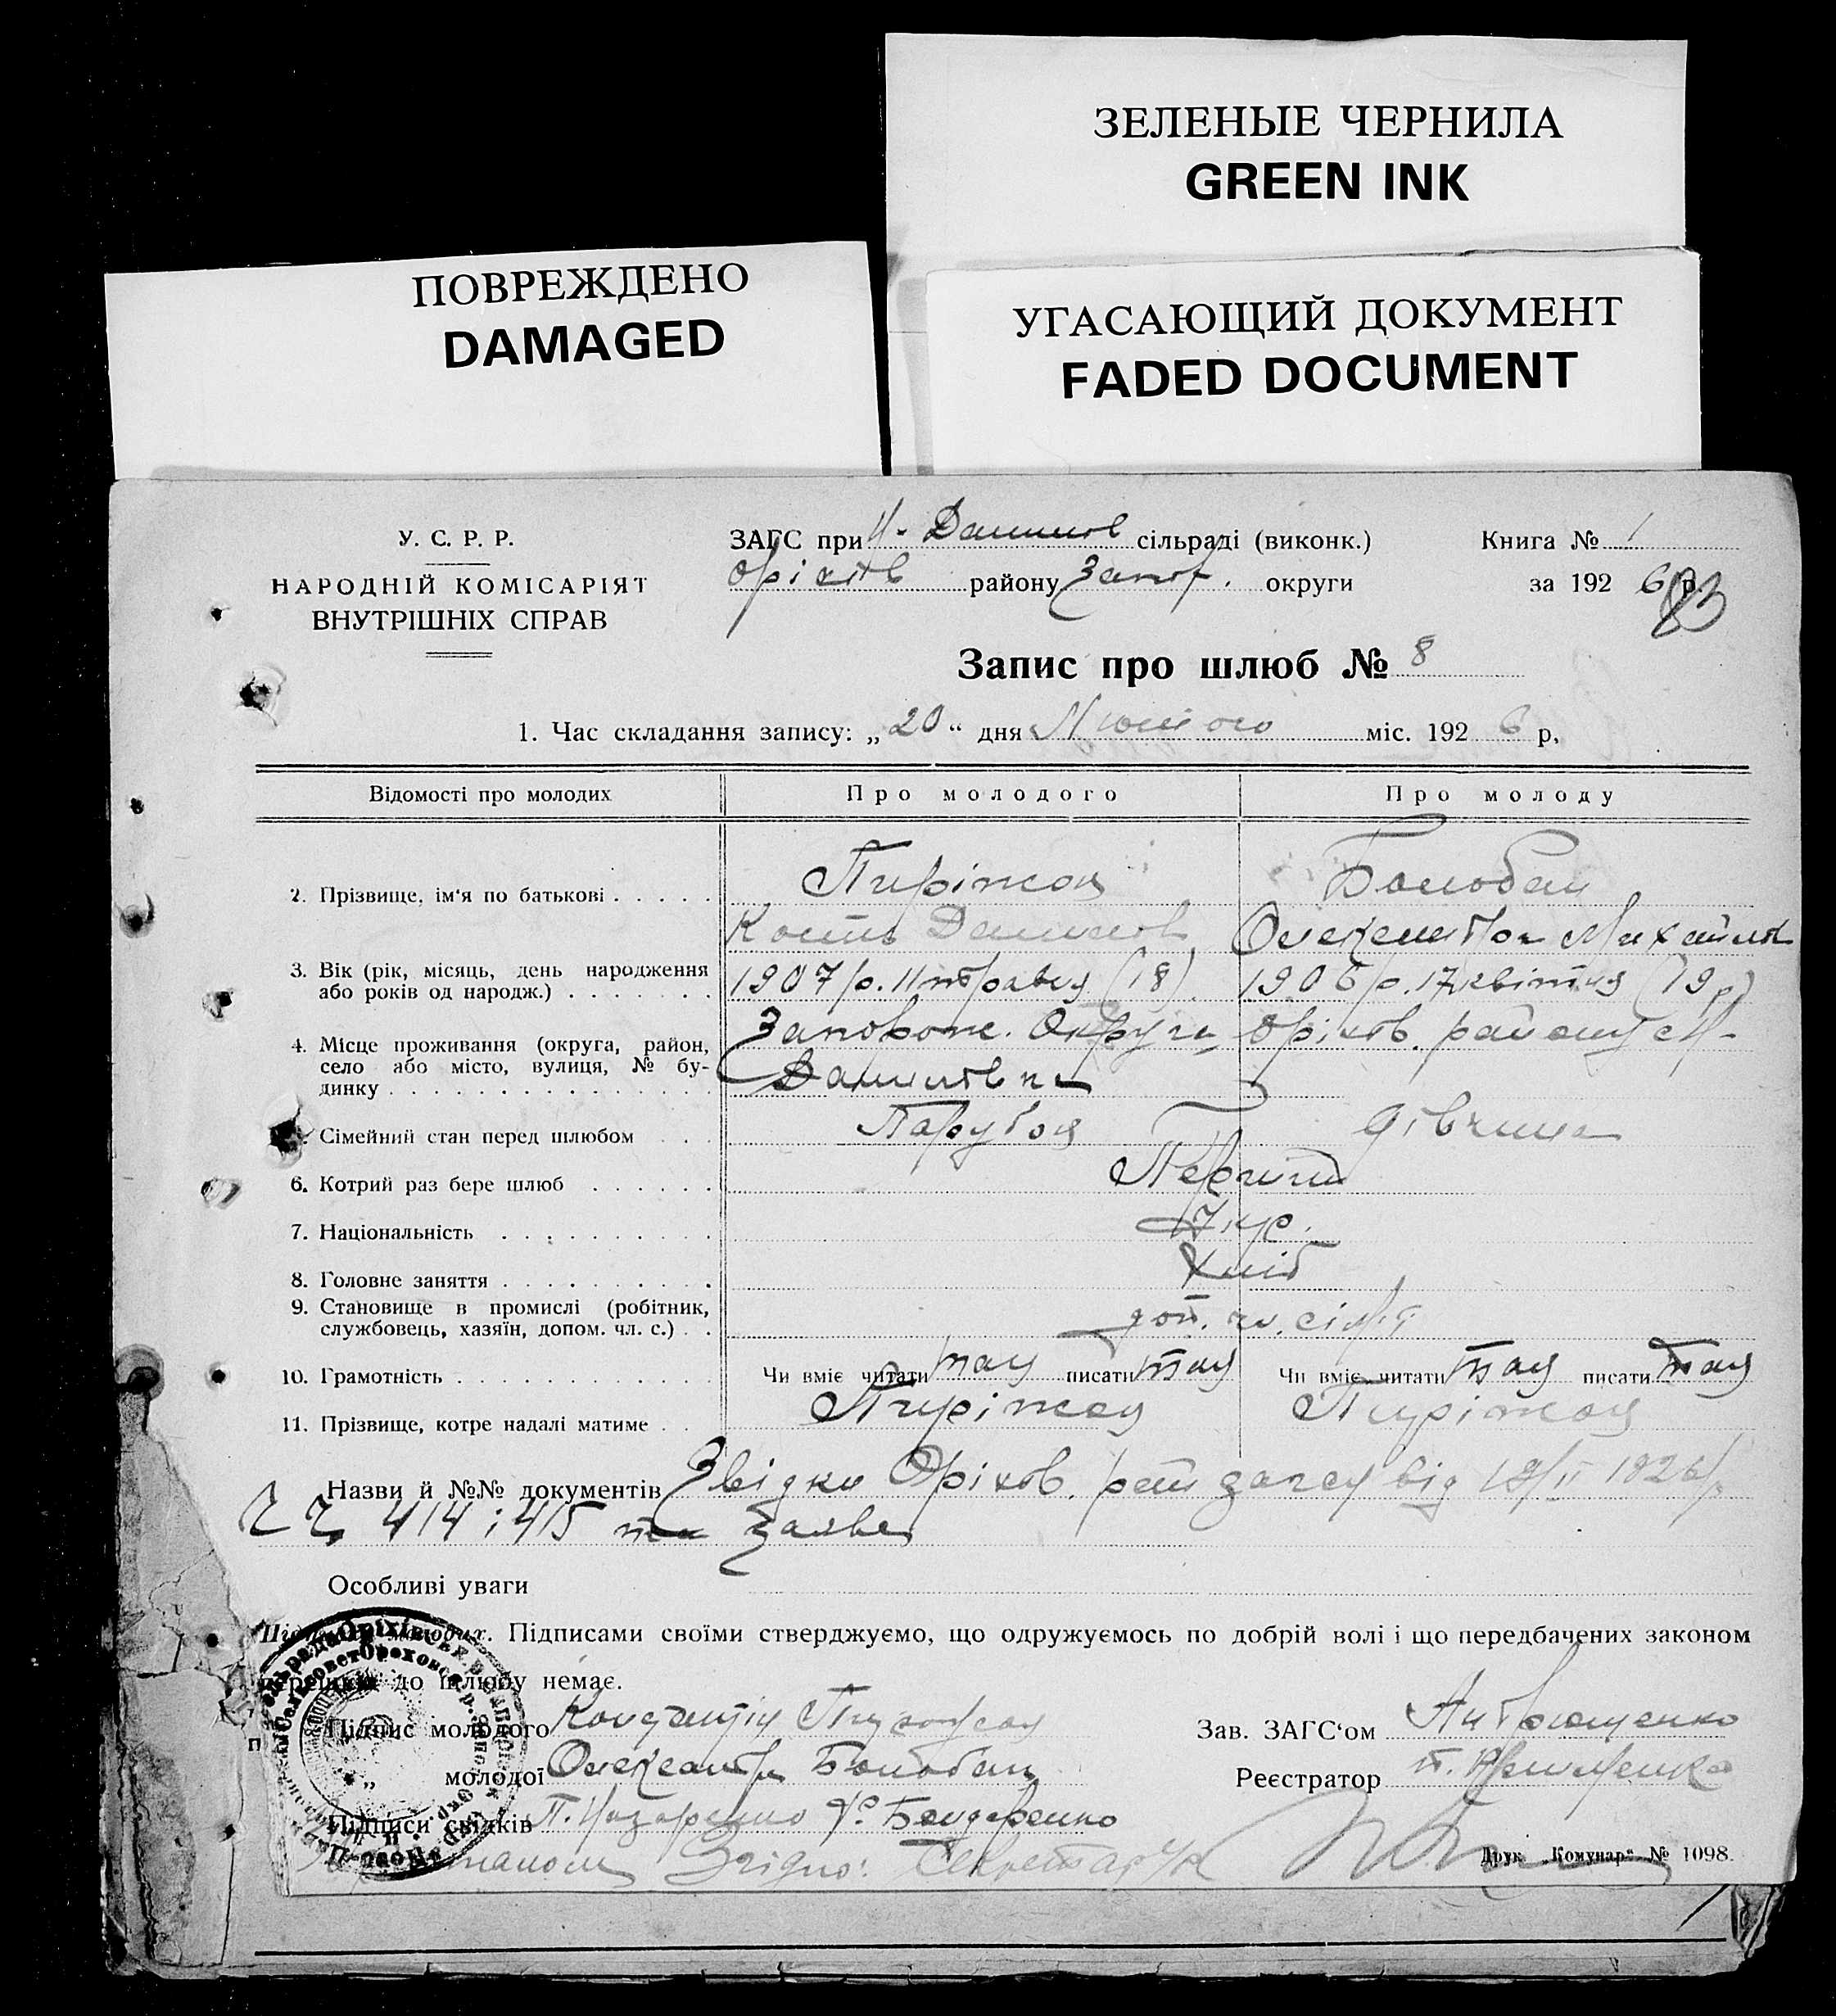 ЗЕЛЕНЫЕ ЧЕРНИЛА
GREEN INK
ПОВРЕЖДЕНО
DAMAGED
УГАСАЮЩИЙ ДОКУМЕНТ
FADED DOCUMENT
У. С. Р. Р.
НАРОДНІЙ КОМІСАРІЯТ
ВНУТРІШНІХ СПРАВ
ЗАГС при Н-Данилов сільраді (виконк.)
Оріхів району Запор. округи
Книга № 1
за 192 6 р.
83
Запис про шлюб № 8
1. Час складання запису: „ 20 “ дня Лютого міс. 192 6 р,
Відомості про молодих
Про молодого
Про молоду
2. Прізвище, ім‘я по батькові
Пиріжок
Кость Данилов
Болобан
Олександра Михайлов
3. Вік (рік, місяць, день народження
або років од народж.)
1907 р. 11 травня (18)
1906 р. 17 квітня (19 р)
4. Місце проживання (округа, район,
село або місто, вулиця, № бу-
динку
Запорож. Округи Оріхів. району Н-
Данилівка
Сімейний стан перед шлюбом
Парубок
дівчина
6. Котрий раз бере шлюб
Перший
7. Національність
Укр.
8. Головне заняття
Хліб
9. Становище в промислі (робітник,
службовець, хазяїн, допом. чл. с.)
доп. чл. сім'ї
10. Грамотність
Чи вміє читати так писати так
Чи вміє читати так писати так
11. Прізвище, котре надалі матиме
Пиріжок
Пиріжок
Назви й №№ документів Звідки Оріхів. рай загса від 19/II 1926 р.
чч 414 і 415 та заява
Особливі уваги
Підписами своїми стверджуємо, що одружуємось по добрій волі і що передбачених законом
перешкод до шлюбу немає.
Підпис молодого
Зав. ЗАГС‘ом
„ молодої Олександра Болобан
Реєстратор
Підписи свідків П. Назаренко Ф. Бондаренко
Згідно: Секретар
Друк. „Комунар“ № 1098.